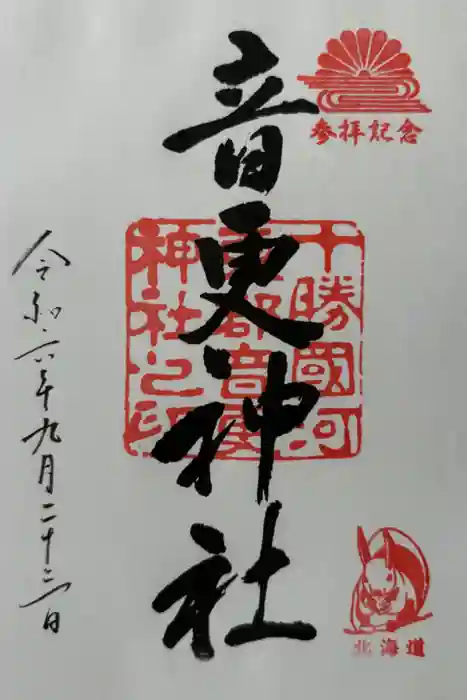 参拝記念
音更神社
十勝國河
東郡音更
神社之印
令和六年九月二十二日
北海道